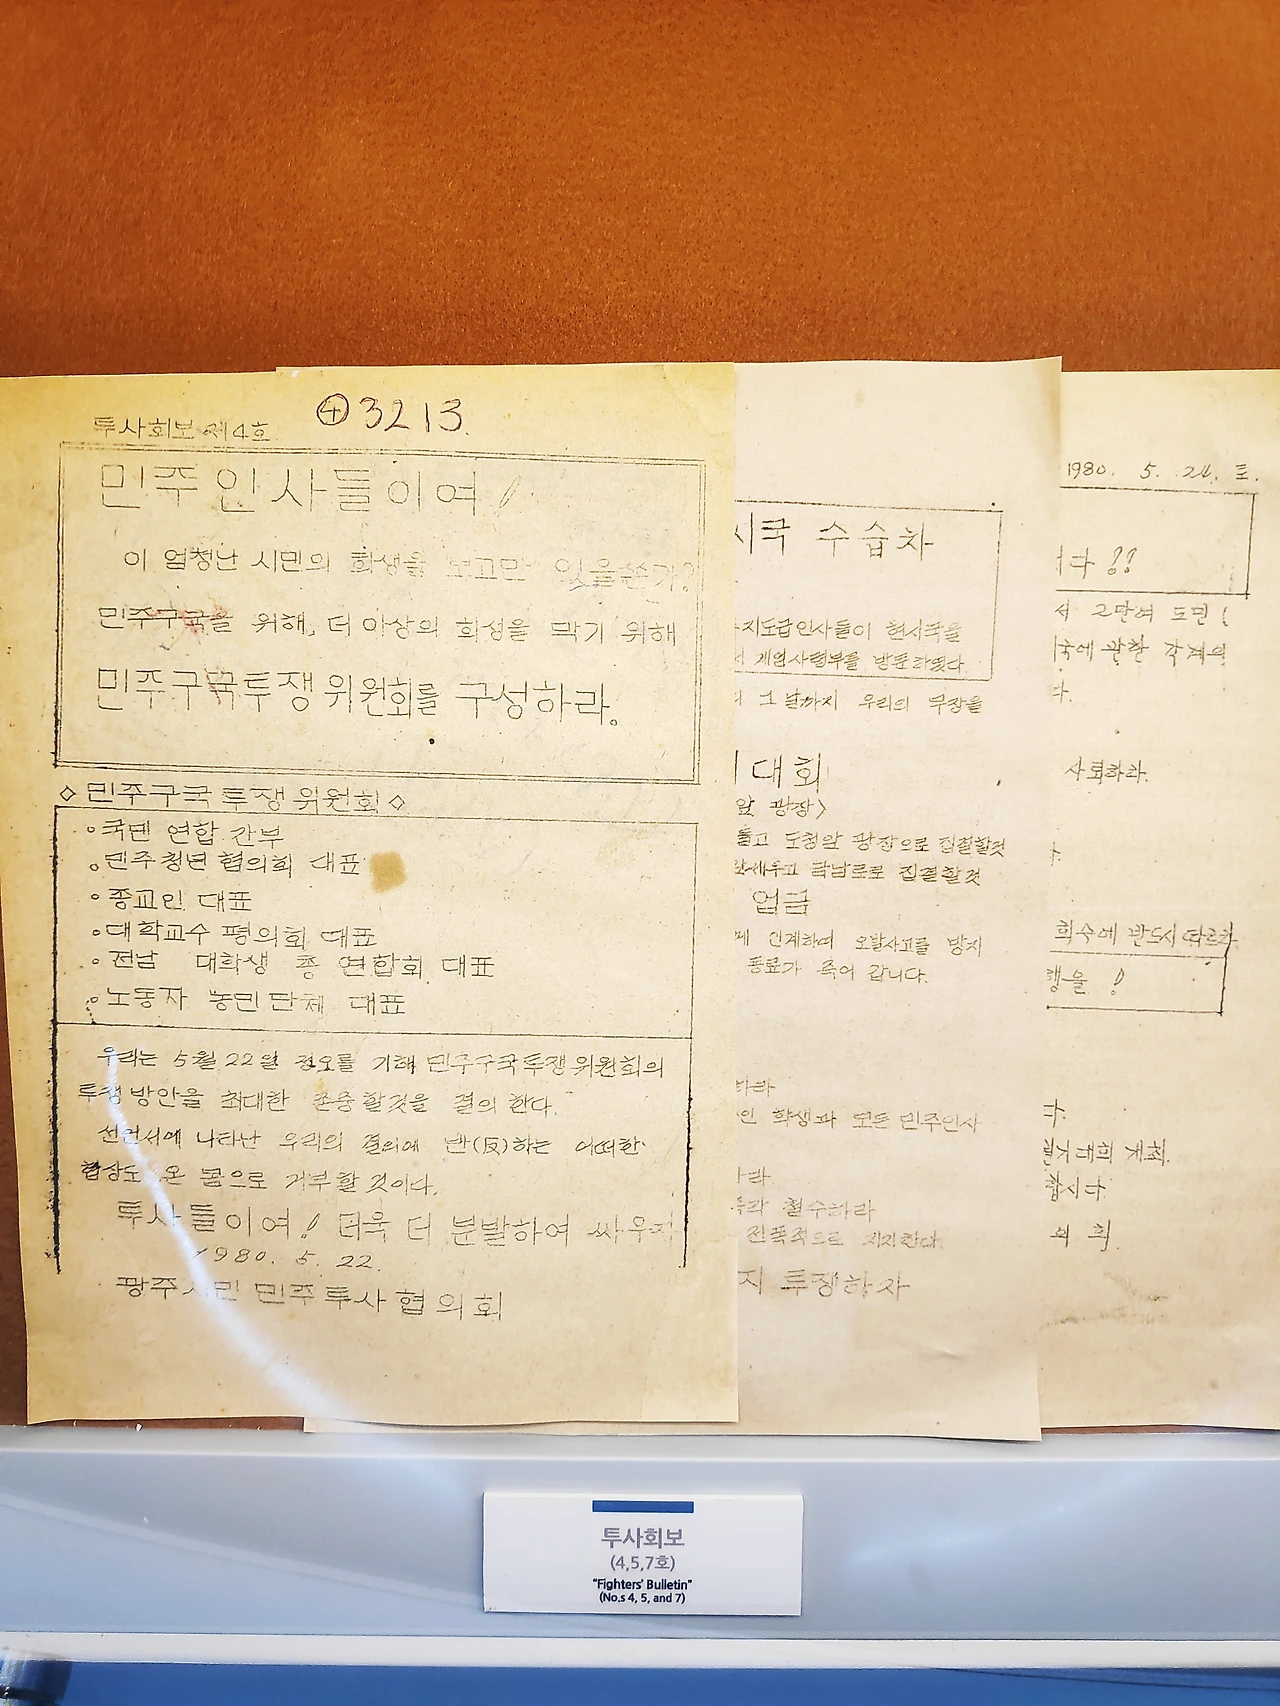 투사회보 제4호
④3213.
민주인사들이여!
이 엄청난 시민의 희생을 보고만 있을쏜가?
민주구국을 위해, 더이상의 희생을 막기 위해
민주구국투쟁위원회를 구성하라.
◇민주구국투쟁위원회◇
◦국민 연합 간부
◦민주 청년 협의회 대표
◦종교인 대표
◦대학교수 평의회 대표
◦전남 대학생 총 연합회 대표
◦노동자 농민단체 대표
우리는 5월 22일 정오를 기해 민주구국투쟁위원회의
투쟁방안을 최대한 존중할것을 결의 한다.
선언서에 나타난 우리의 결의에 반(反)하는 어떠한
협상도 온 몸으로 거부할 것이다.
투사들이여! 더욱 더 분발하여 싸우자
1980. 5. 22.
광주시민 민주투사협의회
시국 수습차
지도급인사들이 현시국을
계엄사령부를 방문하였다.
그날까지 우리의 무장을
대회
앞 광장>
들고 도청앞 광장으로 집결할것
앞세우고 금남로로 집결할것
엄금
인계하여 오발사고를 방지
동료가 죽어 갑니다.
학생과 모든 민주인사
철수하라
전폭적으로 지지한다.
투쟁하자
1980. 5. 24. 토.
다 !!
2만여 도민
관한 각계의
다.
사퇴하라.
반드시 따르자
행을 !
대회 개최.
합시다
의 회.
투사회보
(4,5,7호)
“Fighters' Bulletin”
(No.s 4, 5, and 7)